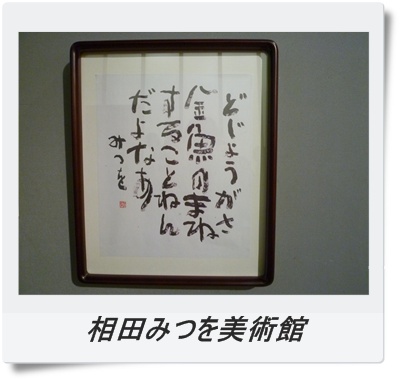 どじょうがさ
金魚のまね
することねん
だよなあ
みつを
相田みつを美術館